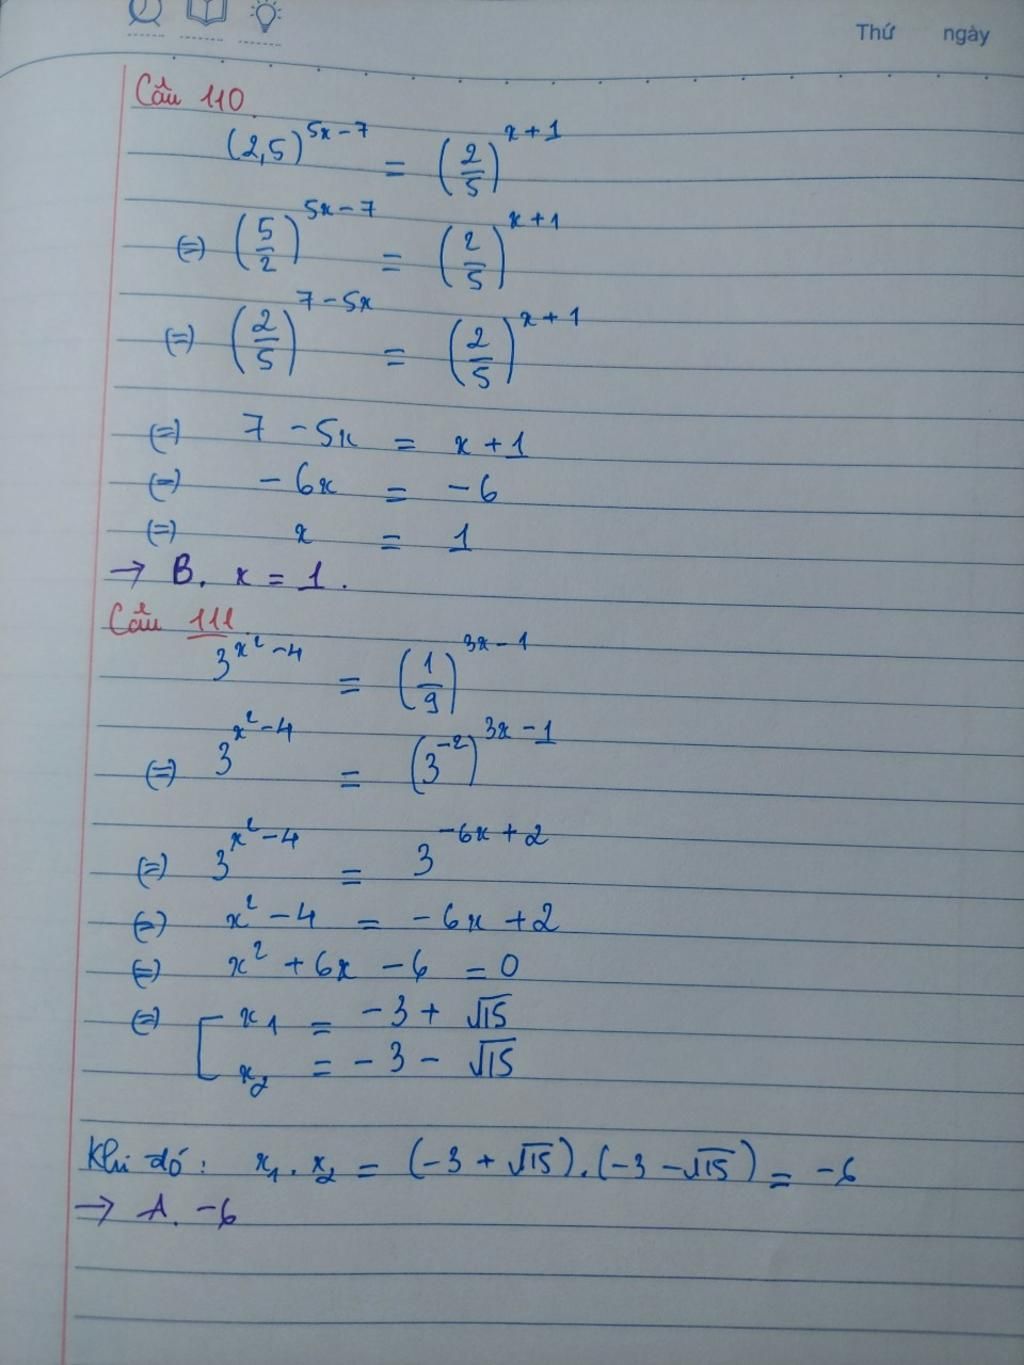 Thứ ngày
Câu 110.
(2,5)^{5x-7} = (2/5)^{x+1}
(=) (5/2)^{5x-7} = (2/5)^{x+1}
(=) (2/5)^{7-5x} = (2/5)^{x+1}
(=) 7 - 5x = x + 1
(=) - 6x = - 6
(=) x = 1
→ B. x = 1.
Câu 111.
3^{x²-4} = (1/9)^{3x-1}
(=) 3^{x²-4} = (3^{-2})^{3x-1}
(=) 3^{x²-4} = 3^{-6x+2}
(=) x² - 4 = - 6x + 2
(=) x² + 6x - 6 = 0
(=) [ x₁ = - 3 + √15
x₂ = - 3 - √15
Khi đó: x₁ . x₂ = (-3 + √15).(-3 - √15) = -6
→ A. -6